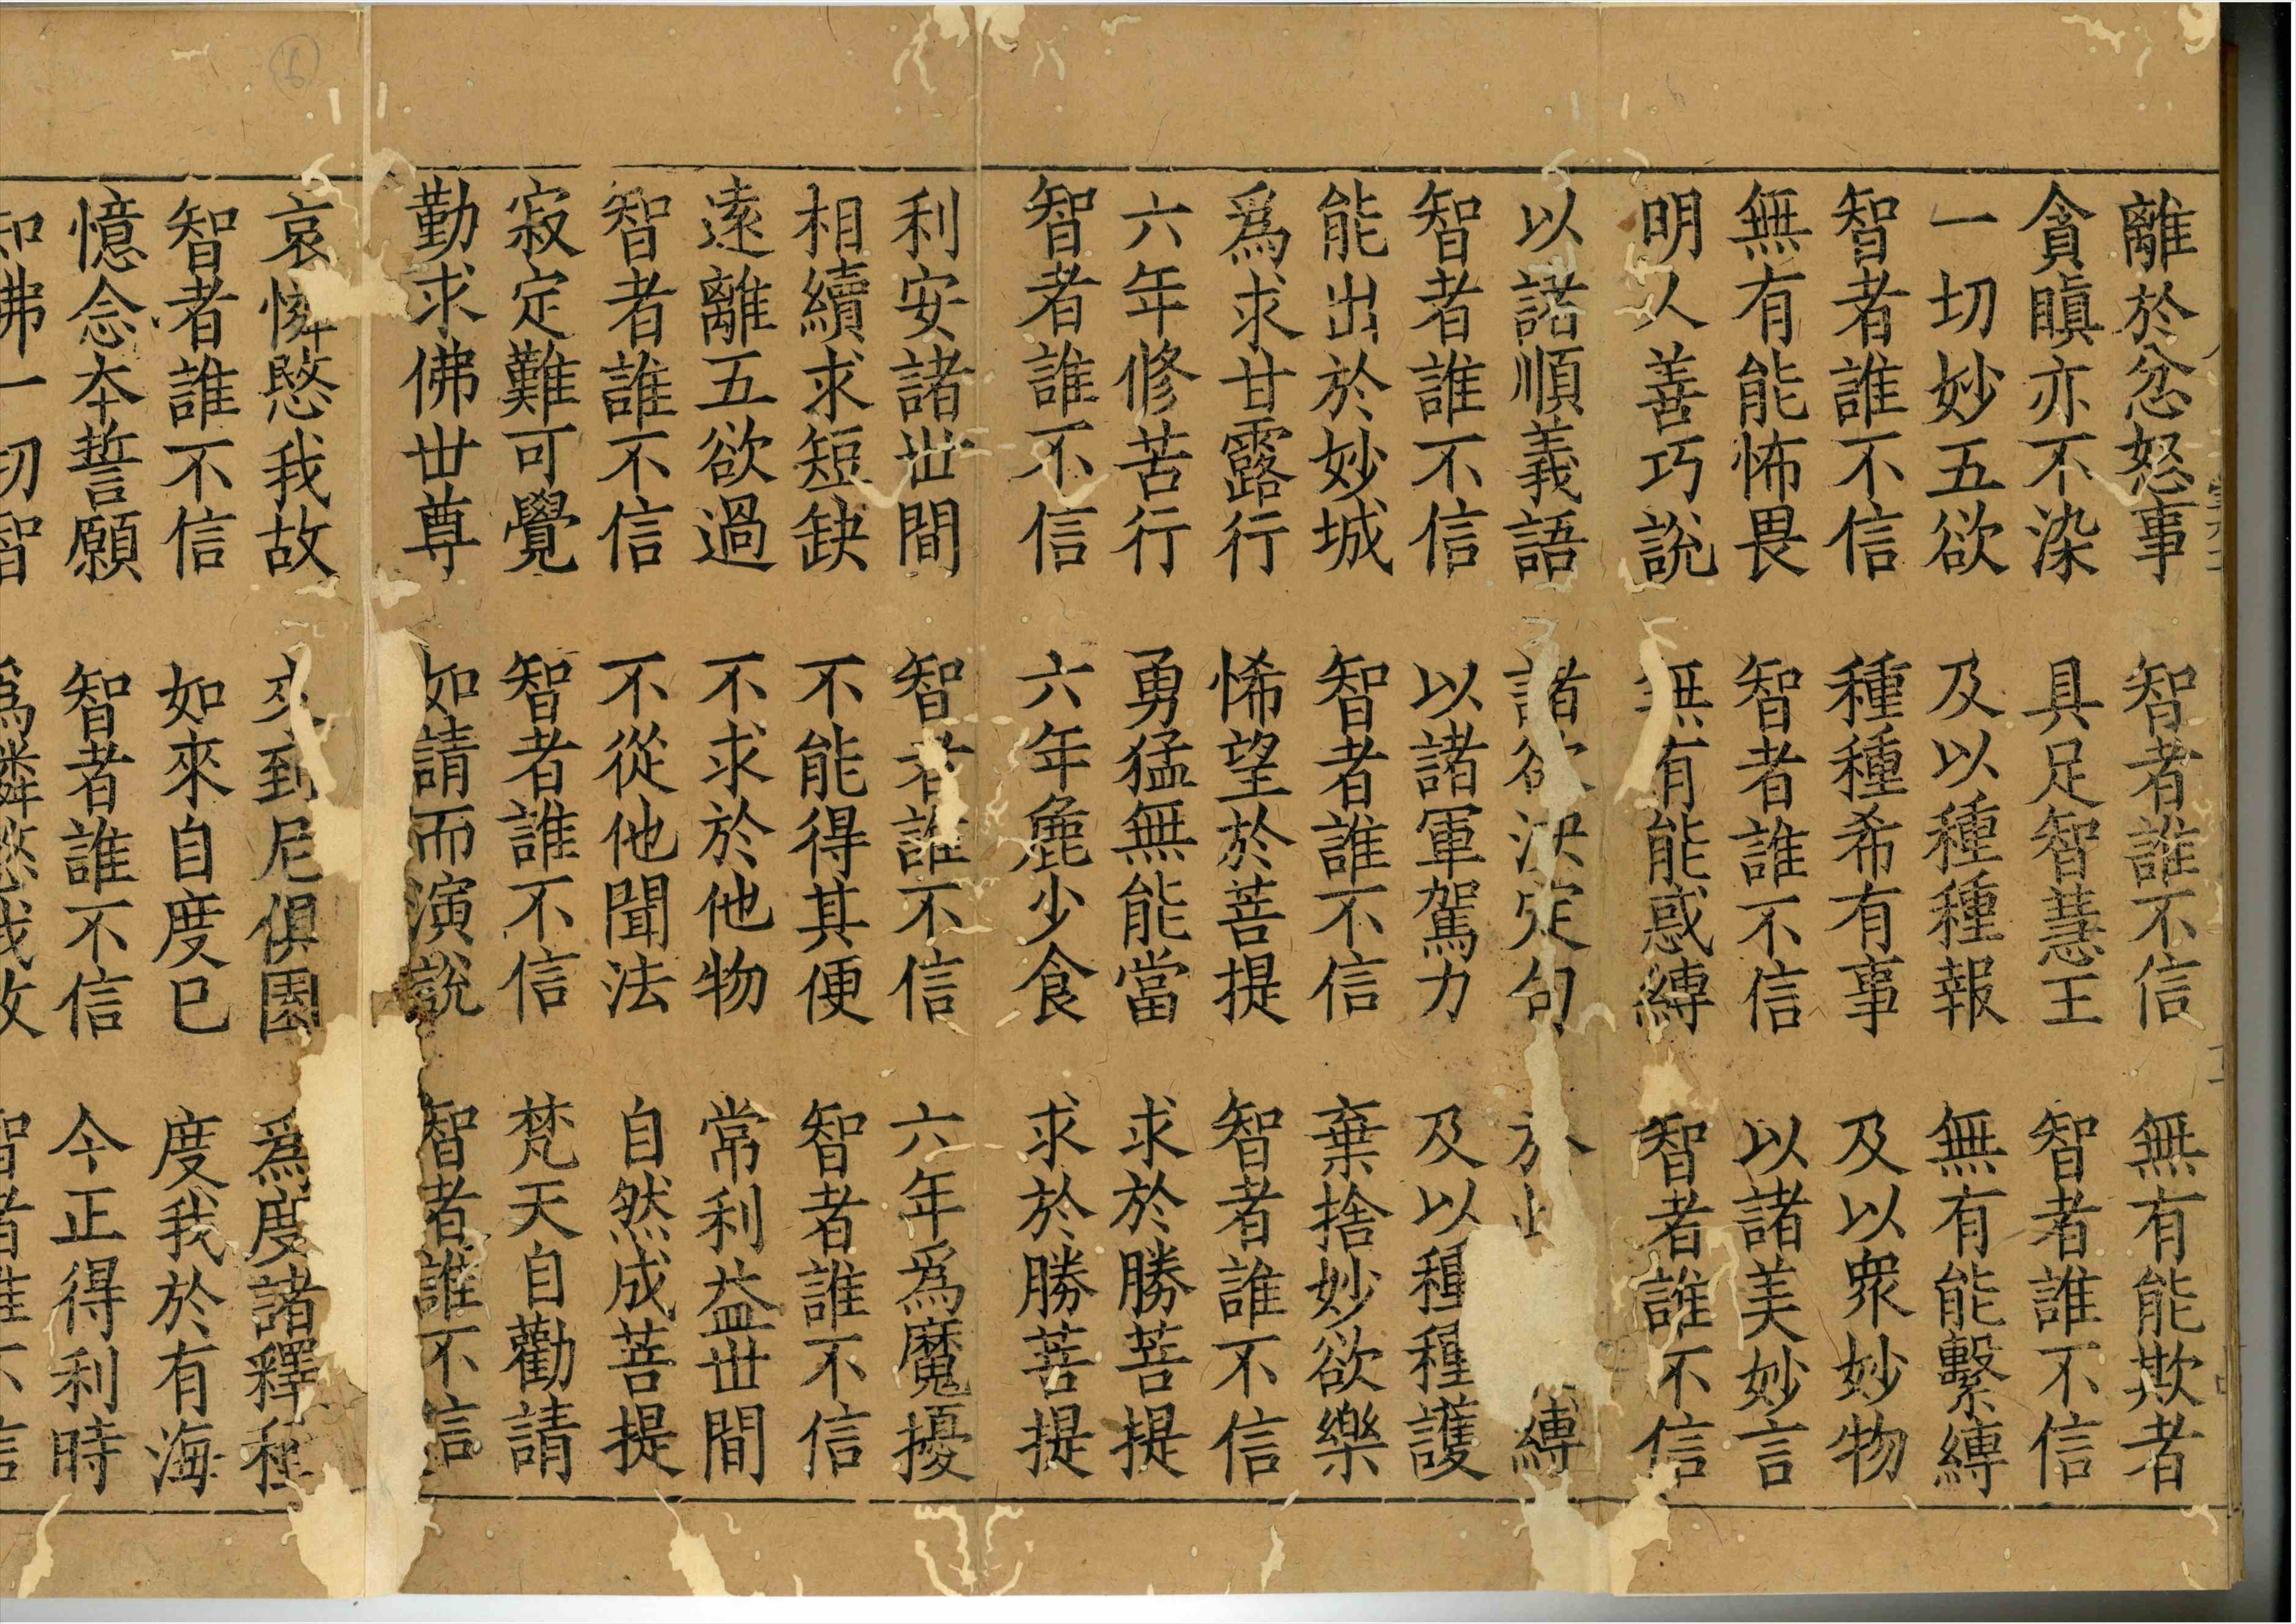 離於忿怒事　智者誰不信　無有能欺者
貪瞋亦不染　具足智慧王　智者誰不信
一切妙五欲　及以種種報　無有能繫縛
智者誰不信　種種希有事　及以衆妙物
無有能怖畏　智者誰不信　以諸美妙言
明人善巧說　無有能惑縛　智者誰不信
以諸順義語　諸欲決定句　於　縛
智者誰不信　以諸軍駕力　及以種種護
能出於妙城　智者誰不信　棄捨妙欲樂
爲求甘露行　悕望於菩提　智者誰不信
六年修苦行　勇猛無能當　求於勝菩提
智者誰不信　六年麁少食　求於勝菩提
利安諸世間　智者誰不信　六年爲魔擾
相續求短缺　不能得其便　智者誰不信
遠離五欲過　不求於他物　常利益世間
智者誰不信　不從他聞法　自然成菩提
寂定難可覺　智者誰不信　梵天自勸請
勤求佛世尊　如請而演說　智者誰不信
哀憐愍我故　來到尼俱園　爲度諸釋種
智者誰不信　如來自度已　度我於有海
憶念本誓願　智者誰不信　今正得利時
知佛一切智　爲憐愍我故　智者誰不信